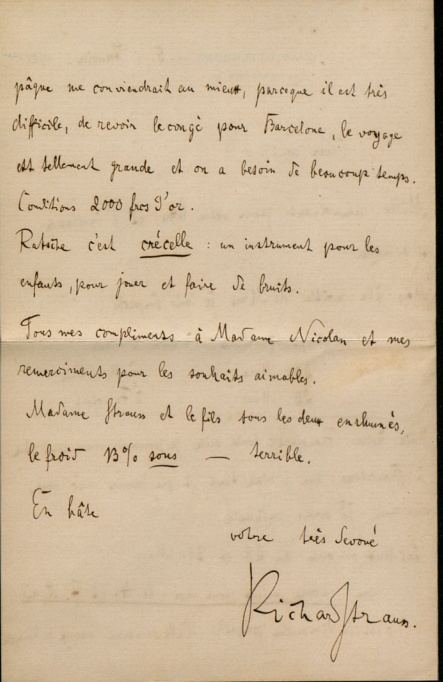 pâque me conviendrait au mieux, parceque il est très
difficile, de revoir le congé pour Barcelone, le voyage
est tellement grande et on a besoin de beaucoup temps.
Conditions 2000 frcs d'or.
Ratsche c'est crécelle : un instrument pour les
enfants, pour jouer et faire de bruits.
Tous mes compliments à Madame Nicolau et mes
remerciments pour les souhaits aimables.
Madame Strauss et le fils tous les deux enrhumés,
le froid 13% sous — terrible.
En hâte
votre très devoué
Richard Strauss.